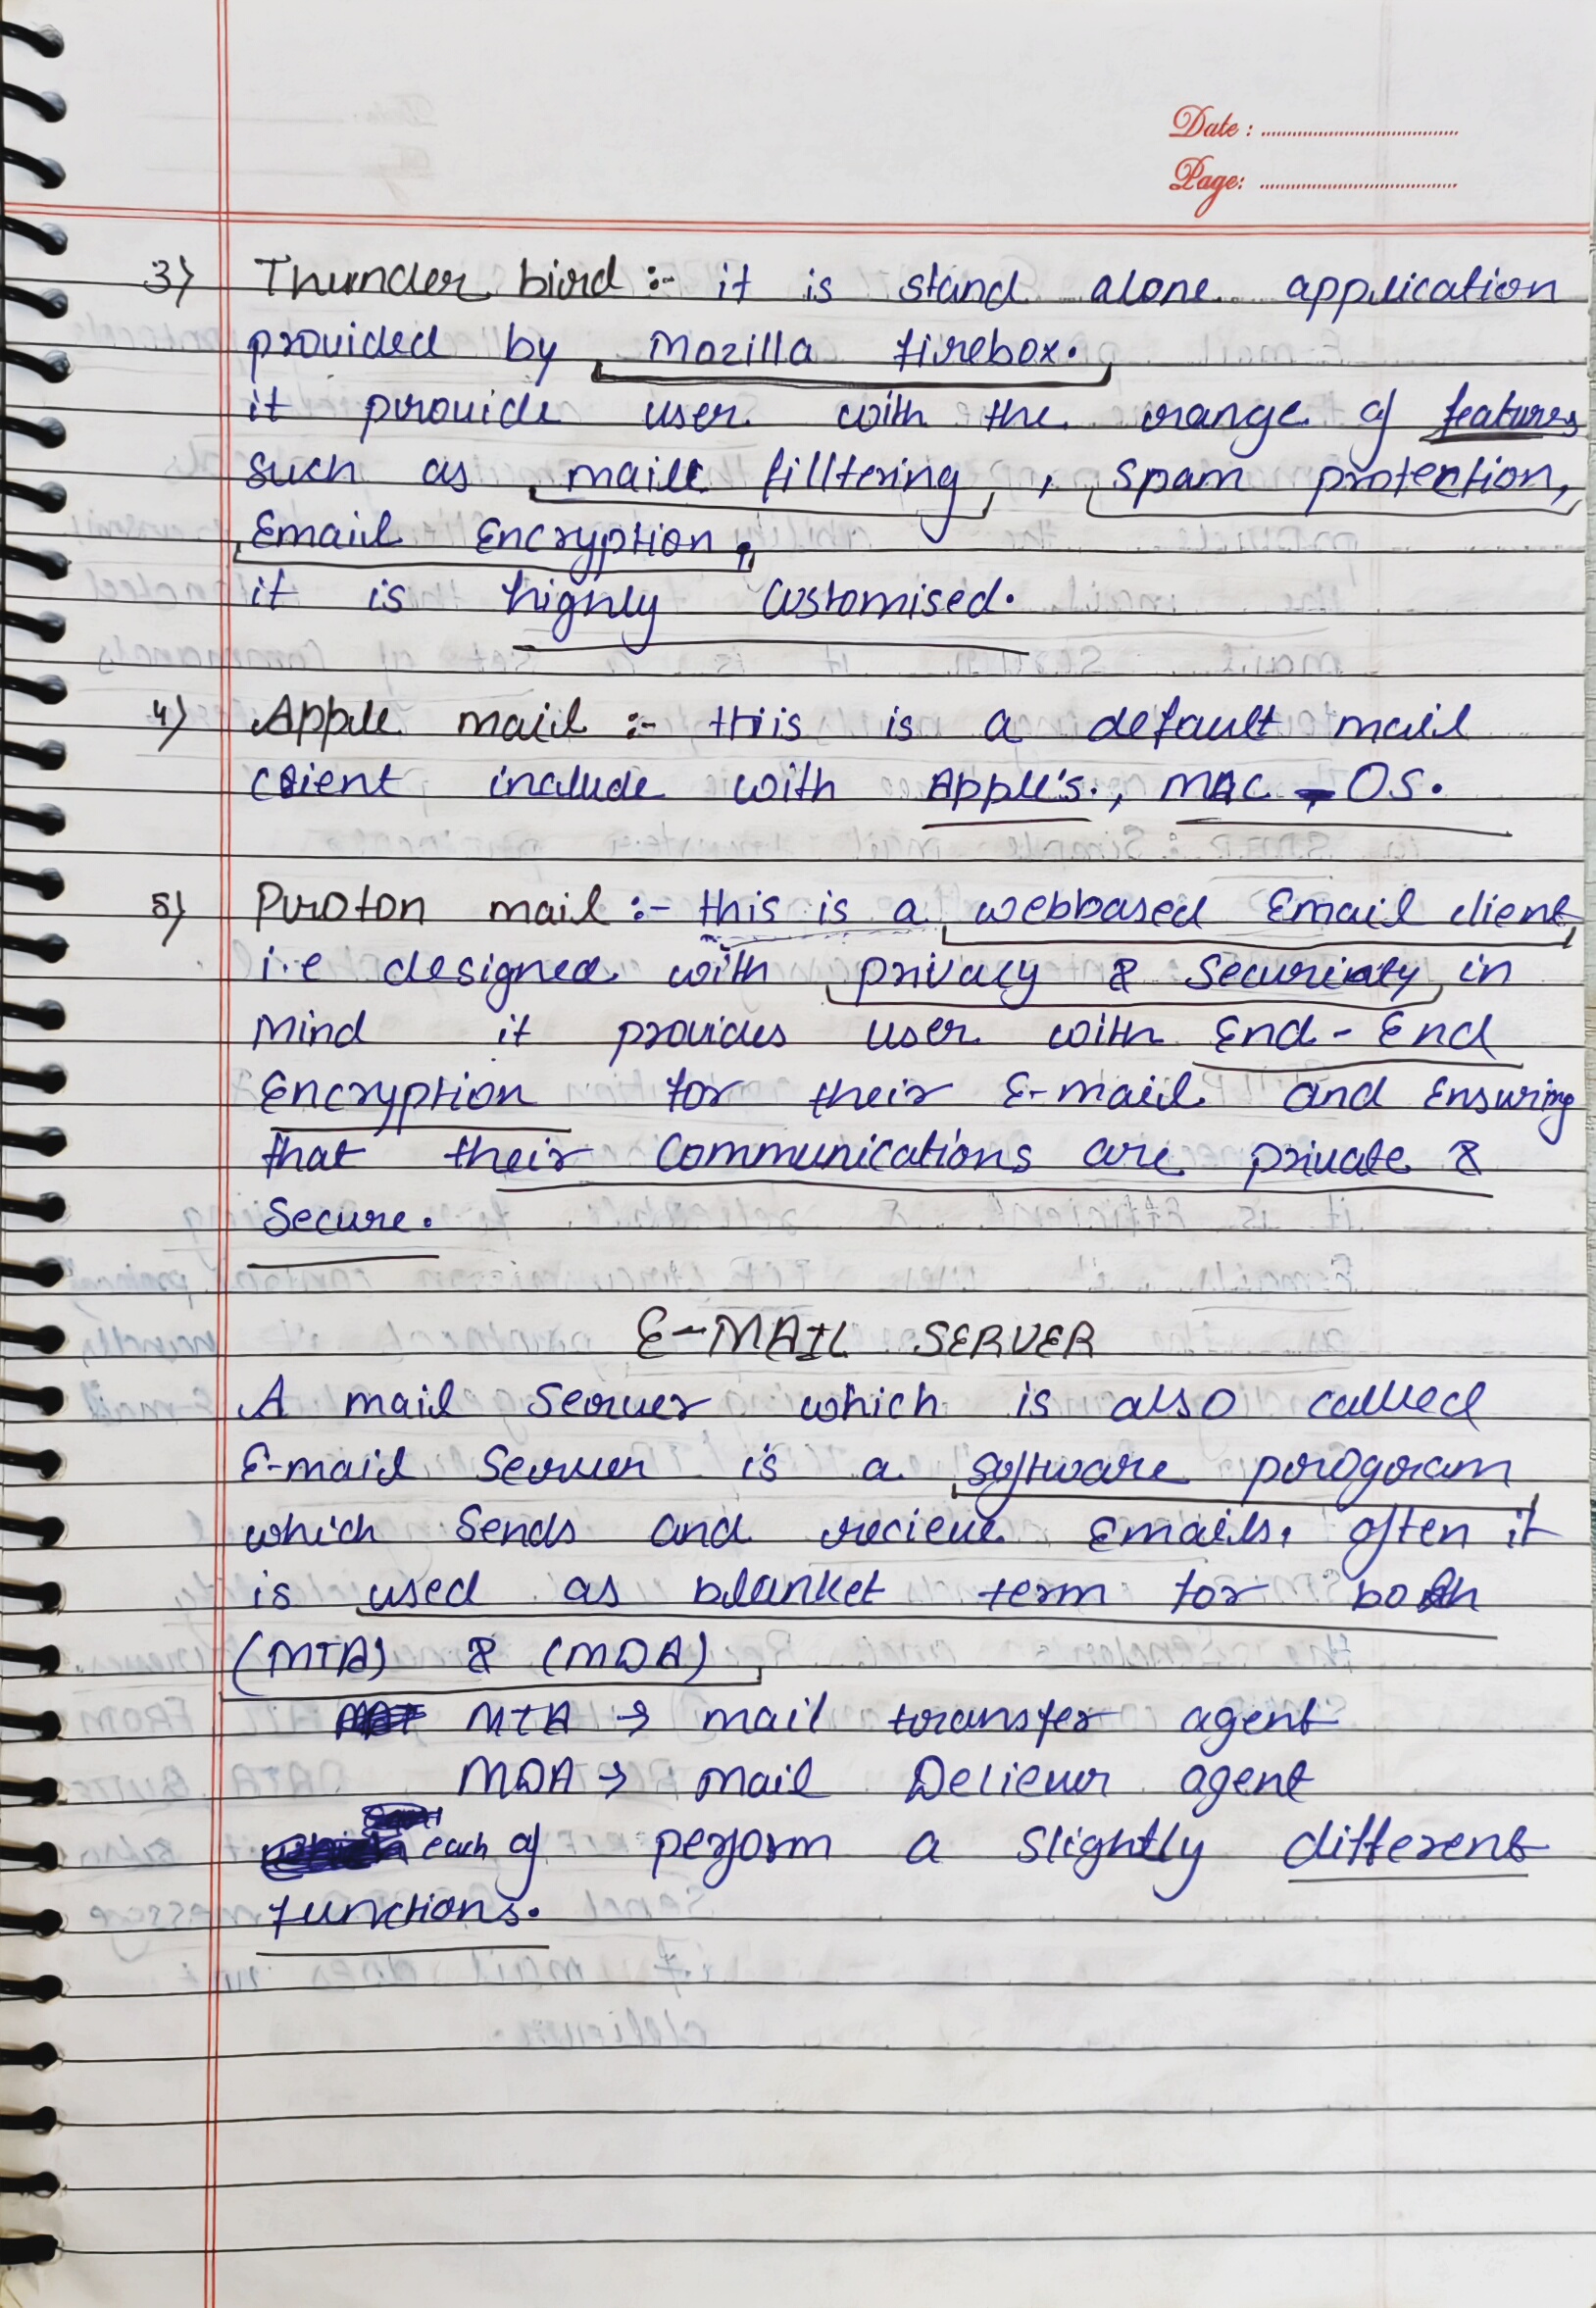 Date :
Page:
3) Thunder bird :- it is stand alone application
provided by Mozilla firebox.
it provide user with the range of features
such as mail filltering , spam protection,
Email Encryption,
it is highly customised.
4) Apple mail :- this is a default mail
client include with Apple's., MAC - OS.
5) Proton mail :- this is a webbased Email client
i.e designed with privacy & Security in
Mind it provides user with End - End
Encryption for their E-mail and Ensuring
that their communications are private &
Secure.
E-MAIL SERVER
A mail Server which is also called
E-mail Server is a software program
which Sends and recieve Emails. often it
is used as blanket term for both
(MTA) & (MDA)
MTA → mail transfer agent
MDA → Mail Deliever agent
each of perform a slightly different
functions.